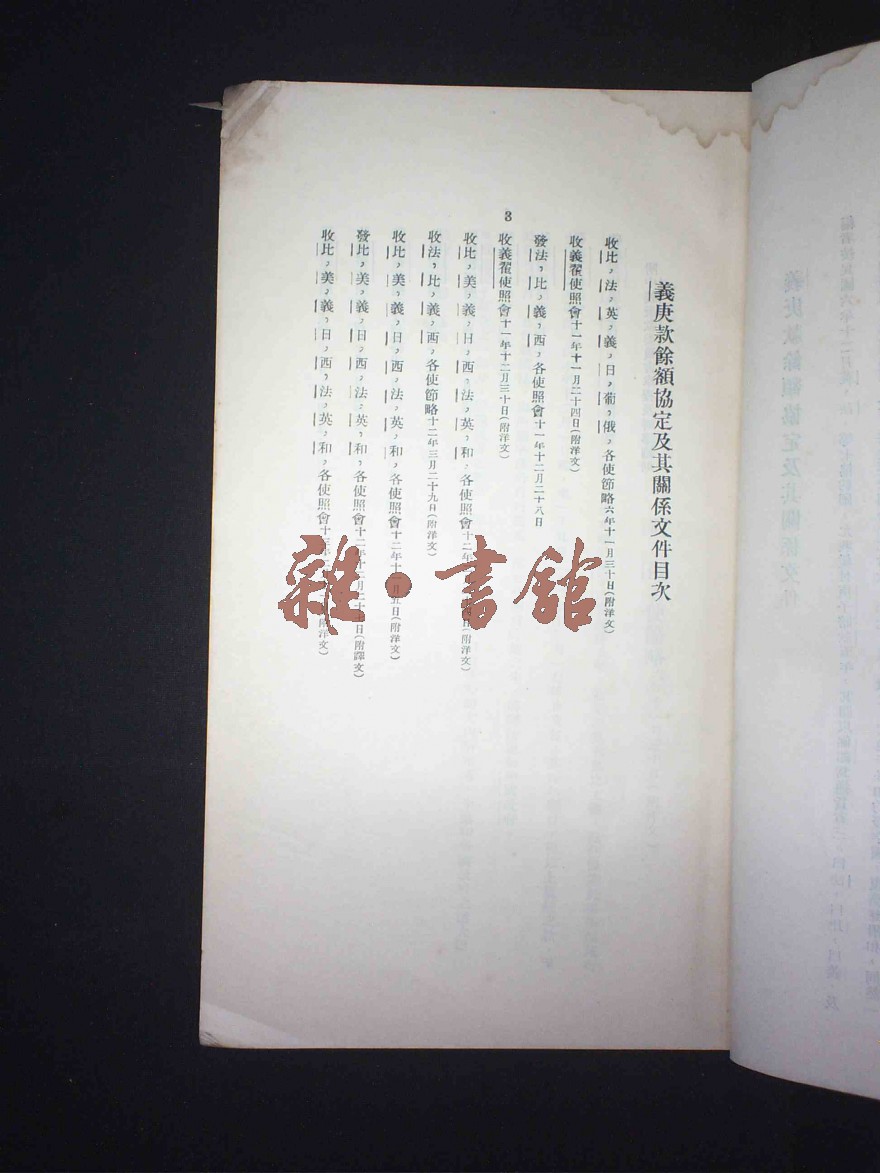 義庚款餘額協定及其關係文件目次
收比,法,英,義,日,葡,俄,各使節略六年十一月三十日(附洋文)
收義翟使照會十一年十一月二十四日(附洋文)
發法,比,義,西,各使照會十一年十二月二十八日
3
收義翟使照會十一年十二月三十日(附洋文)
收比,美,義,日,西,法,英,和,各使照會十二年 日(附洋文)
收法,比,義,西,各使節略十二年三月二十九日(附洋文)
收比,美,義,日,西,法,英,和,各使照會十二年十一月五日(附洋文)
發比,美,義,日,西,法,英,和,各使照會十二年十二月二十 日(附譯文)
收比,美,義,日,西,法,英,和,各使照會十三年 (附洋文)
雜·書館
義庚款餘額協定及其關係文件